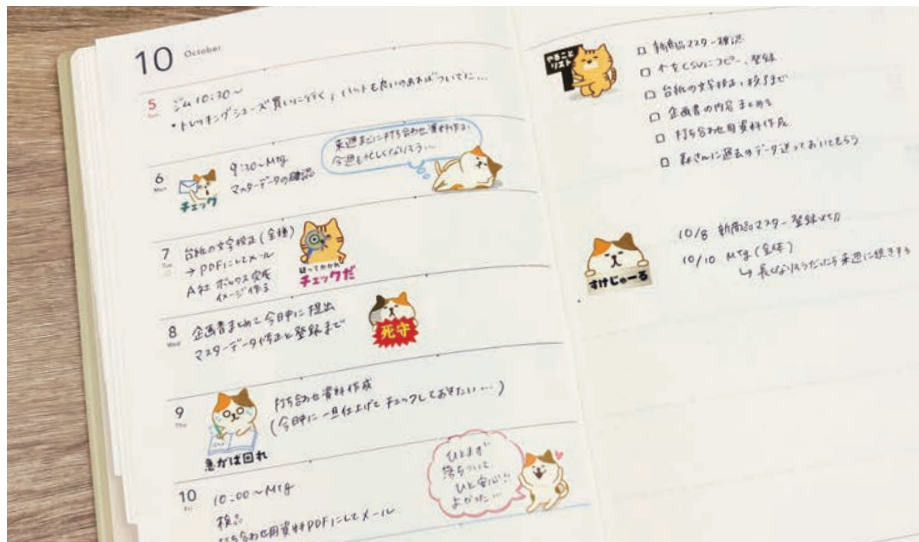 10 October
5
ジム 10:30~
・トレッキングシューズ買いに行く,
6
Mon
9:30~Mtg
マスターデータの確認
チェック
来週までに打ち合わせ資料作る。
今週も忙しくなりそう…
7
Tue
台紙の文字校正(全種)
→PDFにしてメール
A社 ボックス完成
イメージ作る
疑ってかかれ
チェックだ
8
Wed
企画書まとめて今日中に提出
マスターデータ修正と登録まで
死守
9
Thu
打ち合わせ資料作成
(今日中に一旦仕上げてチェックしておきたい…)
急がば回れ
10
Fri
10:00~Mtg
検品
打ち合わせ用資料PDFにしてメール
ひとまず
落ちついて
ひと安心!!
よかった…
やること
リスト
□ 新商品マスター確認
□ をCSVにコピー、登録
□ 台紙の文字校正、校了まで
□ 企画書の内容まとめる
□ 打ち合わせ用資料作成
□ さんに過去のデータ送っておいてもらう
すけじゅーる
10/8 新商品マスター登録〆切
10/10 Mtg(全体)
↳ 長くなりそうだったら来週に続きする